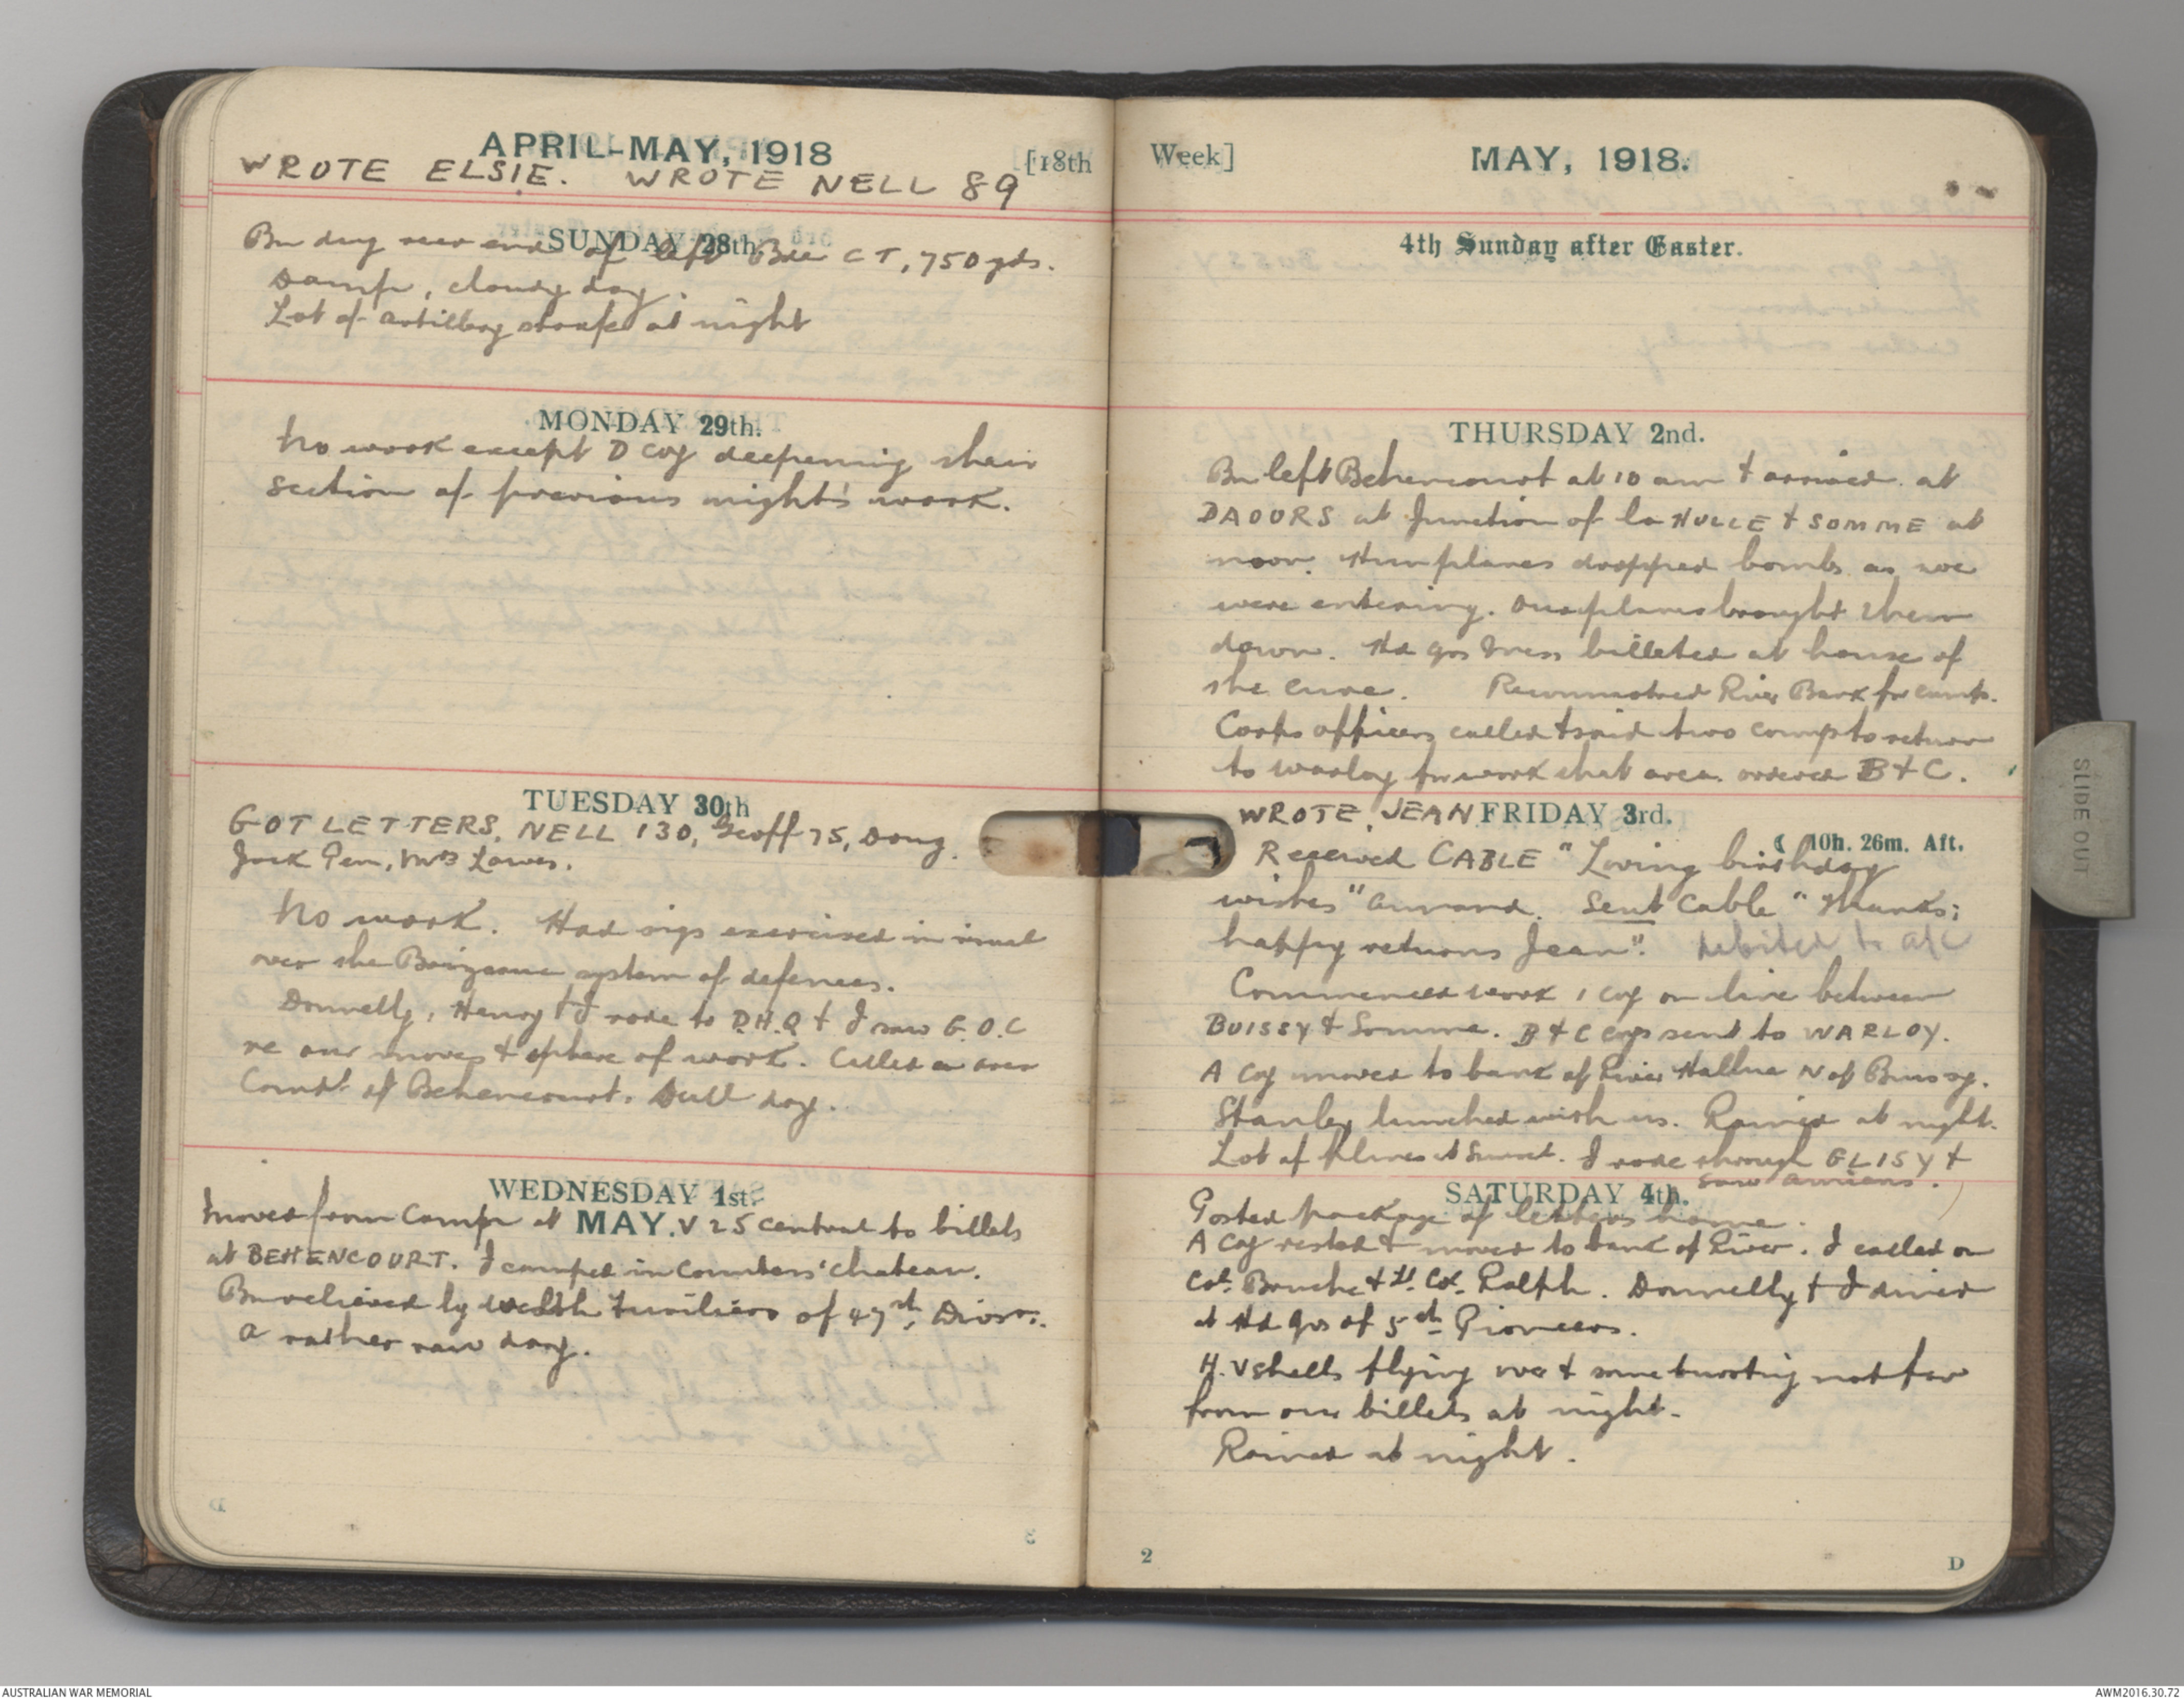 APRIL-MAY, 1918
[18th
WROTE ELSIE. WROTE NELL 89
SUNDAY 28th.
Bn dug rear end of left Bde CT, 750 yds.
Damp, cloudy day.
Lot of artillery strafe at night
MONDAY 29th.
No work except D coy deepening their
section of previous night's work.
TUESDAY 30th
GOT LETTERS, NELL 130, Geoff 75, Doug.
Jack Pem, Mrs Lawes.
No work. Had sigs exercised in visual
over the Baizieux system of defences.
Donnelly, Henry & I rode to D.H.Q & I saw G.O.C
re our moves & sphere of work. Called on area
Comdt at Behencourt. Dull day.
WEDNESDAY 1st.
MAY.
Moved from Camp at V 25 central to billets
at BEHENCOURT. I camped in Countess' chateau.
Bn relieved by Welsh Fusiliers of 47th Divsn.
A rather raw day.
3
Week]
MAY, 1918.
4th Sunday after Easter.
THURSDAY 2nd.
Bn left Behencourt at 10 am & arrived at
DAOURS at junction of la HULLE & SOMME at
noon. Hun planes dropped bombs as we
were entering. Our planes brought them
down. Hd qrs Mess billeted at house of
the Cure. Reconnoitred River Bank for camp.
Corps officers called & said two comps to return
to Warloy for work that area. ordered B & C.
WROTE, JEAN
FRIDAY 3rd.
☾ 10h. 26m. Aft.
Received CABLE "Loving birthday
wishes" Annand. Sent Cable "Thanks;
happy returns Jean". Debited to a/c
Commenced work 1 coy on line between
BUISSY & Somme. B & C coys sent to WARLOY.
A Coy moved to bank of River Hallue N of Bussy.
Stanley lunched with us. Rained at night.
Lot of planes at Sunset. I rode through GLISY &
saw Amiens.
SATURDAY 4th.
Posted package of letters home.
A Coy rested & moved to bank of River. I called on
Col. Bouche & Lt. Col. Ralph. Donnelly & I dined
at Hd qrs of 5th Pioneers.
H.V shells flying over & some bursting not far
from our billets at night.
Rained at night.
2
D
SLIDE OUT
AUSTRALIAN WAR MEMORIAL
AWM2016.30.72